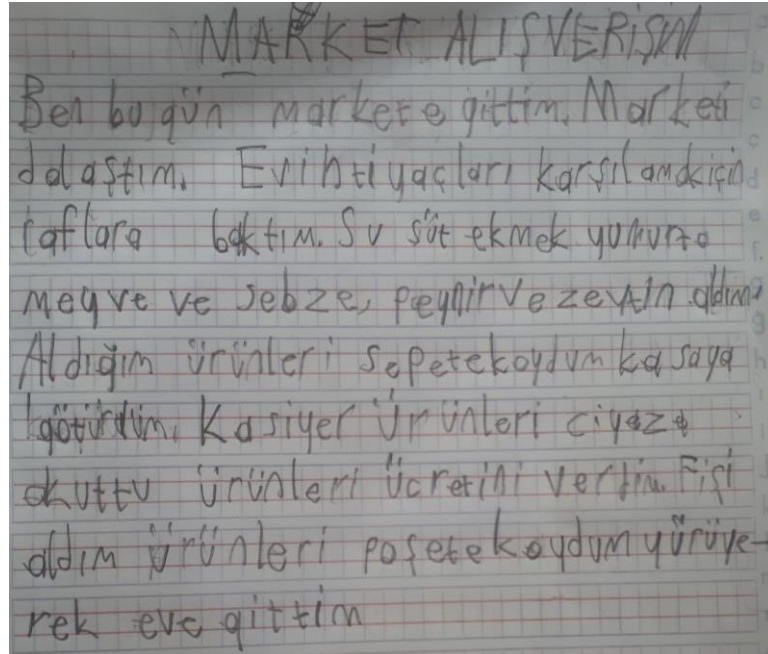 MARKET ALIŞVERİŞİ
Ben bugün markete gittim. Marketi
dolaştım. Ev ihtiyaçları karşılamak için
raflara baktım. Su süt ekmek yumurta
meyve ve sebze, peynir ve zeytin aldım.
Aldığım ürünleri sepete koydum kasaya
götürdüm. Kasiyer ürünleri ciyaza
okuttu ürünleri ücretini verdim. Fişi
aldım ürünleri poşete koydum yürüye-
rek eve gittim